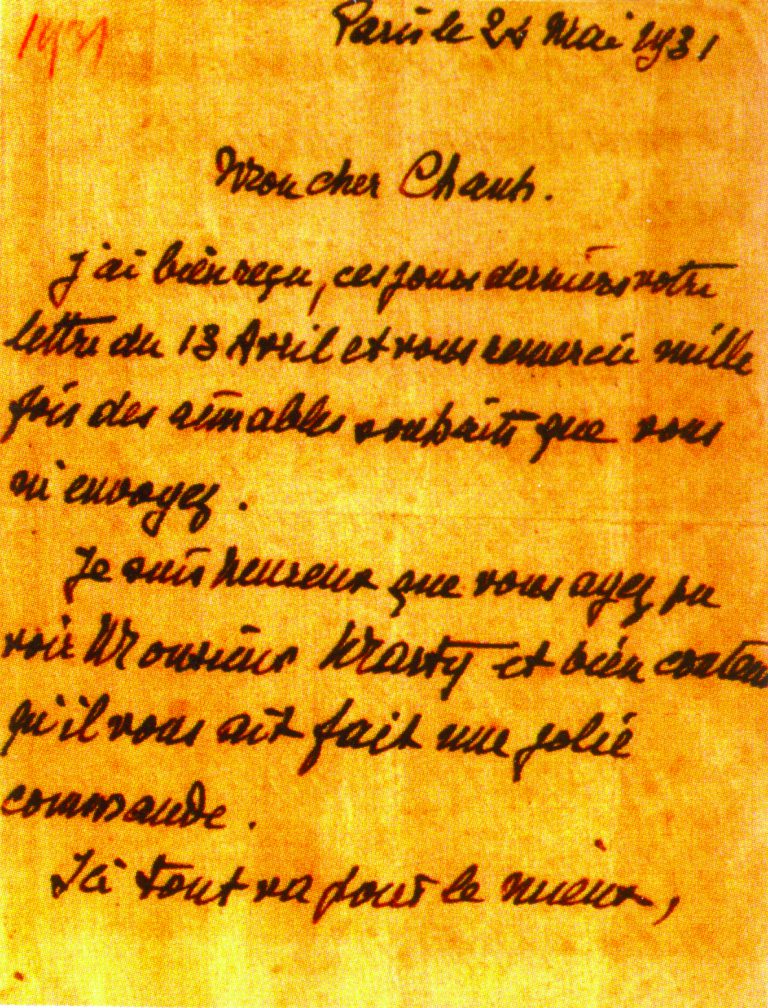 1931
Paris le 24 Mai 1931
Mon cher Chanh.
J'ai bien reçu, ces jours derniers votre
lettre du 13 Avril et vous remercie mille
fois des aimables souhaits que vous
m'envoyez.
Je suis heureux que vous ayez pu
voir Monsieur Marty et bien content
qu'il vous ait fait une jolie
commande.
Ici tout va pour le mieux,